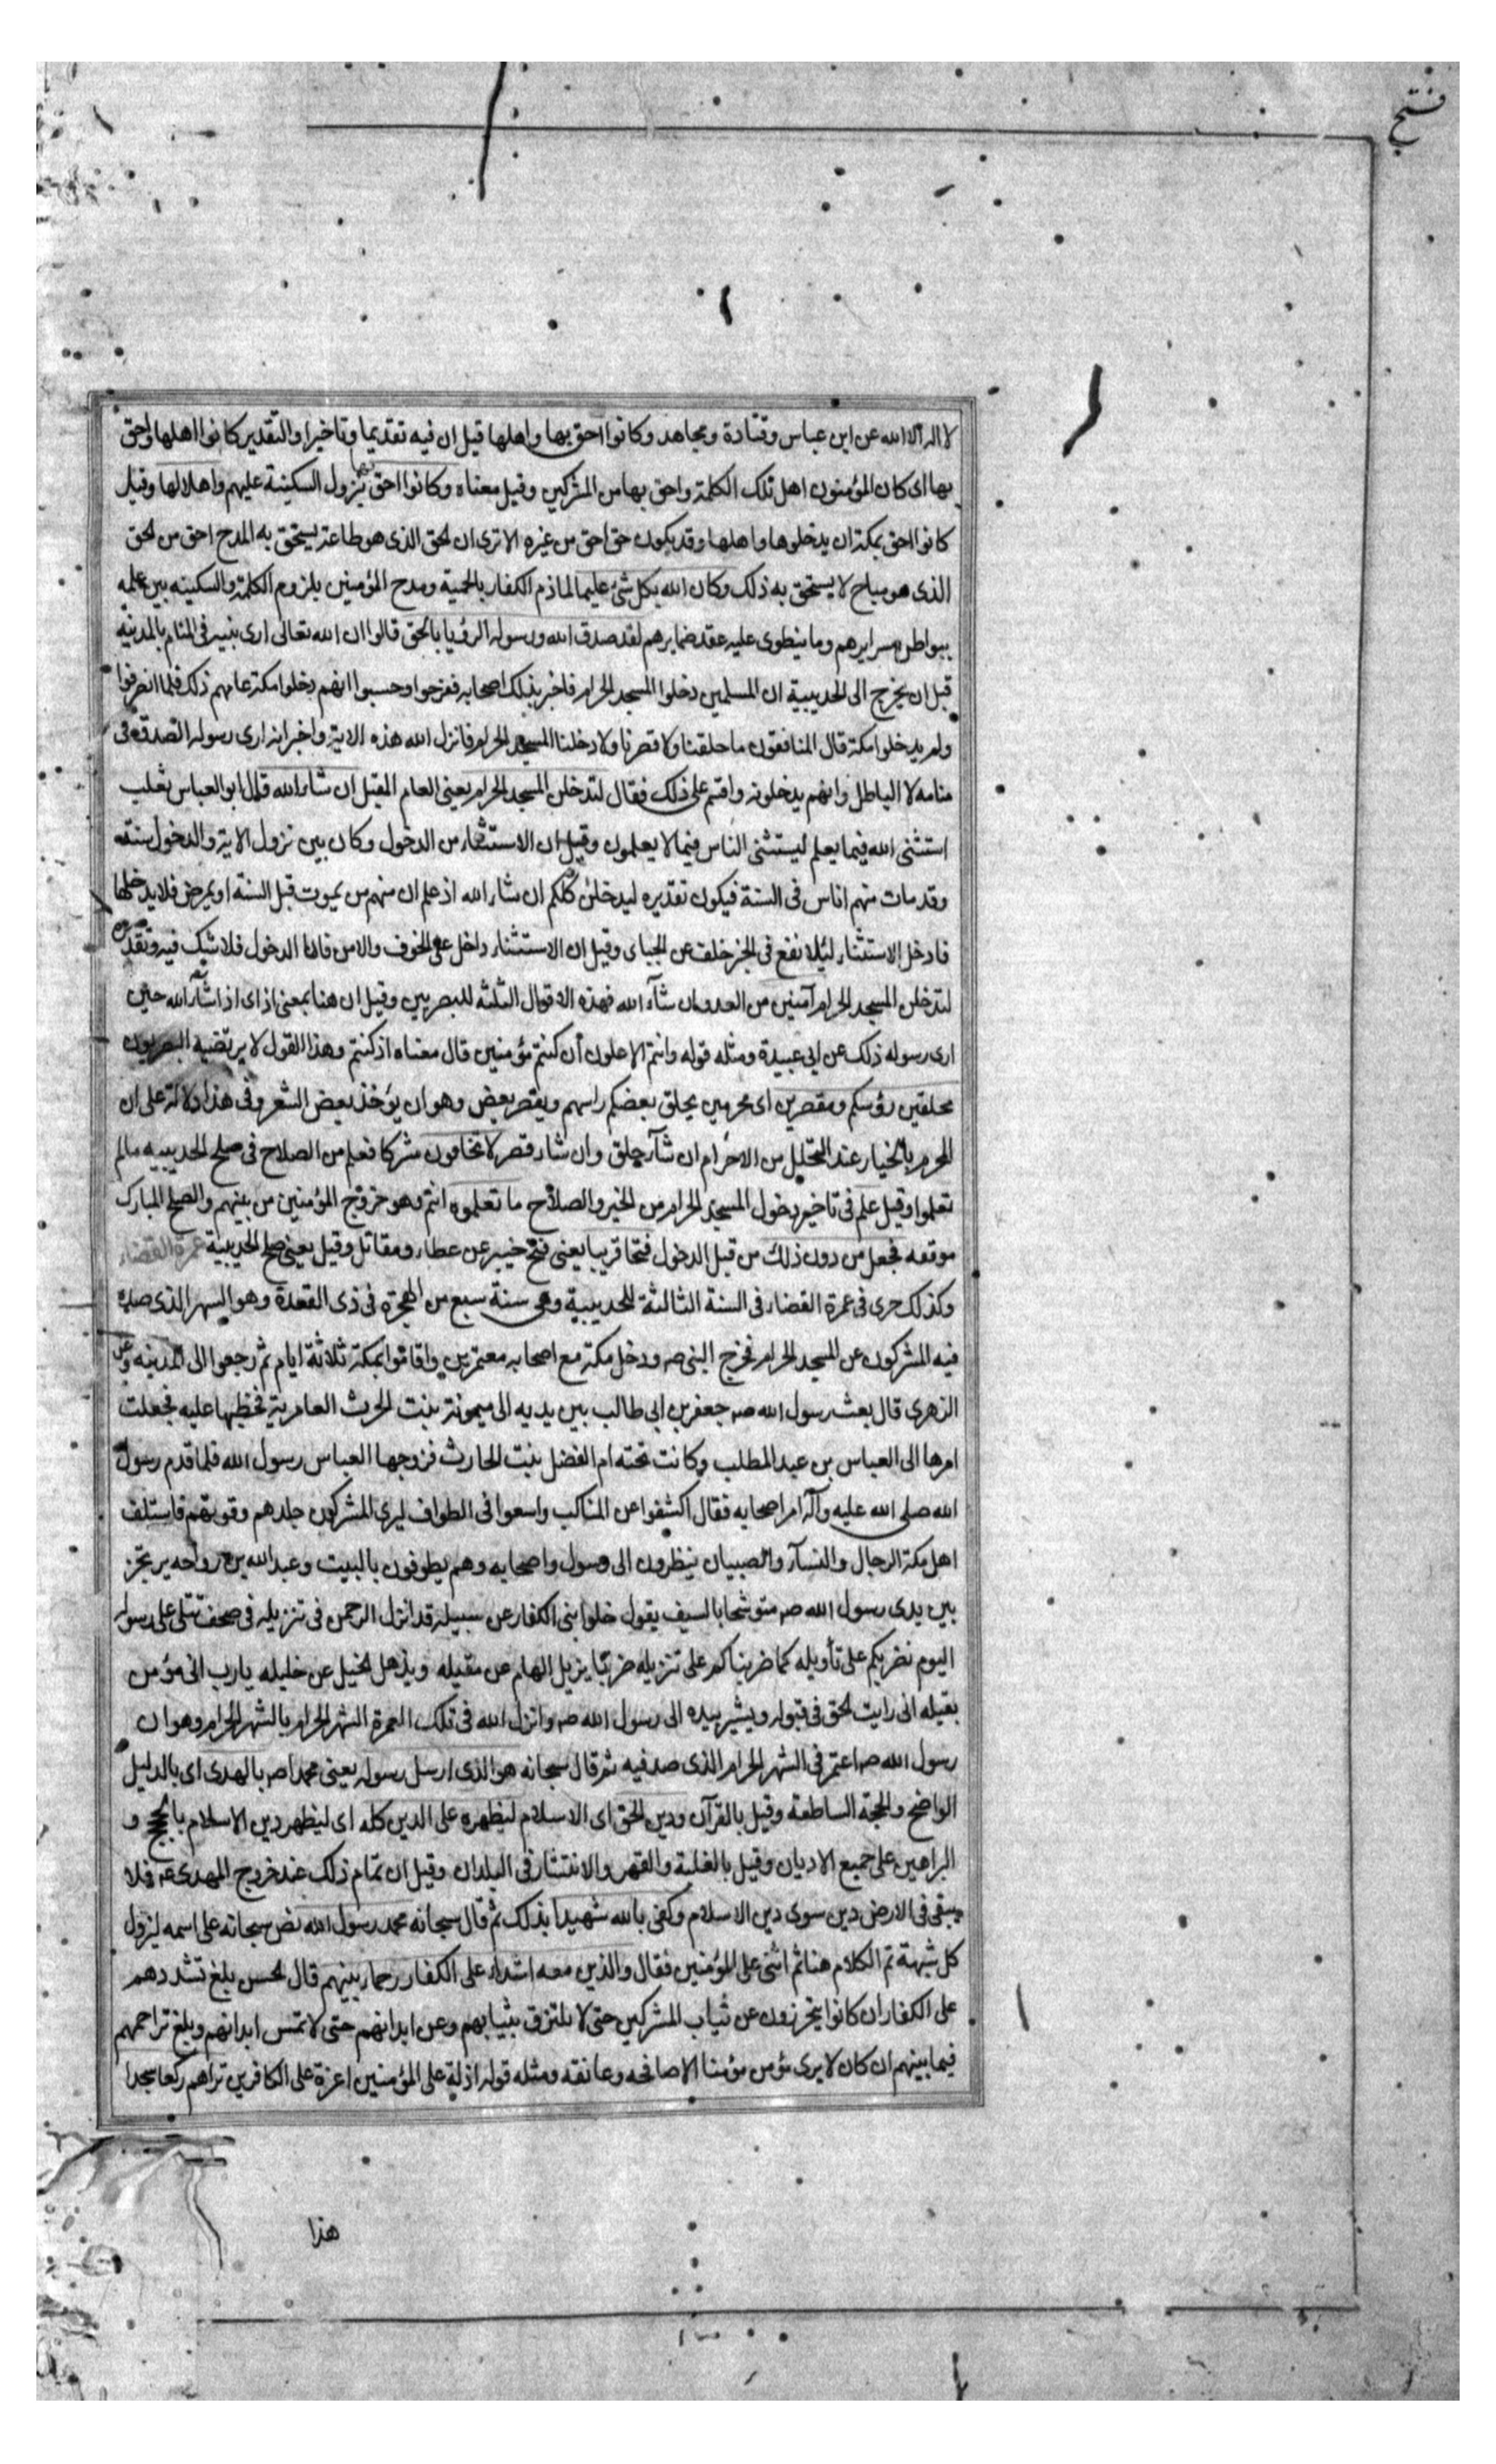 فتح
لا اله الا الله عن ابن عباس وقتادة ومجاهد وكانوا احق بها واهلها قيل ان فيه تقديما وتاخيرا والتقدير كانوا اهلها واحق
بها اى كان المؤمنون اهل تلك الكلمة واحق بها من المشركين وقيل معناه وكانوا احق بنزول السكينة عليهم واهلا لها وقيل
كانوا احق بمكة ان يدخلوها واهلها وقد يكون حق احق من غيره الا ترى ان الحق الذى هو طاعة يستحق به المدح احق من الحق
الذى هو مباح لا يستحق به ذلك وكان الله بكل شئ عليما لما ذم الكفار بالحمية ومدح المؤمنين بلزوم الكلمة والسكينه بين علمه
ببواطن سرايرهم وما ينطوى عليه عقد ضمايرهم لقد صدق الله ورسوله الرؤيا بالحق قالوا ان الله تعالى ارى نبيه فى المنام بالمدينه
قبل ان يخرج الى الحديبية ان المسلمين دخلوا المسجد الحرام فاخبر بذلك اصحابه ففرحوا وحسبوا انهم دخلوا مكة عامهم ذلك فلما انصرفوا
ولم يدخلوا مكة قال المنافقون ما حلقنا ولا قصرنا ولا دخلنا المسجد الحرام فانزل الله هذه الاية واخبر انه ارى رسوله الصدق فى
منامه لا الباطل وانهم يدخلونه واقسم على ذلك فقال لتدخلن المسجد الحرام يعنى العام المقبل ان شاء الله قال ابو العباس ثعلب
استثنى الله فيما يعلم ليستثنى الناس فيما لا يعلمون وقيل ان الاستثناء من الدخول وكان بين نزول الاية والدخول سنة
وقد مات منهم اناس فى السنة فيكون تقديره ليدخلن كلكم ان شاء الله اذ علم ان منهم من يموت قبل السنة او يمرض فلا يدخلها
فادخل الاستثناء لئلا يقع فى الخبر خلف عن الجباى وقيل ان الاستثناء داخل على الخوف والامن فاما الدخول فلا شك فيه وتقديره
لتدخلن المسجد الحرام آمنين من العدو ان شآء الله فهذه الاقوال الثلثه للبصريين وقيل ان هنا بمعنى اذ اى اذ اشآء الله حين
ارى رسوله ذلك عن ابى عبيدة ومثله قوله وانتم الاعلون ان كنتم مؤمنين قال معناه اذ كنتم وهذا القول لا يرتضيه البصريون
محلقين رؤسكم ومقصرين اى محرمين يحلق بعضكم راسهم ويقصر بعض وهو ان يؤخذ بعض الشعر وفى هذا دلالة على ان
المحرم بالخيار عند التحليل من الاحرام ان شآء حلق وان شاء قصر لا تخافون مشركا فعلم من الصلاح فى صلح الحديبيه ما لم
تعلموا وقيل علم فى تاخير دخول المسجد الحرام من الخير والصلاح ما تعلموه انتم وهو خروج المؤمنين من بينهم والصلح المبارك
موقعه فجعل من دون ذلك من قبل الدخول فتحا قريبا يعنى فتح خيبر عن عطاء ومقاتل وقيل يعنى صلح الحديبية عمرة القضاء
وكذلك جرى فى عمرة القضاء فى السنة الثالثة للحديبية وهى سنة سبع من الهجرة فى ذى القعدة وهو الشهر الذى صده
فيه المشركون عن المسجد الحرام فخرج النبى صم ودخل مكة مع اصحابه معتمرين واقاموا بمكة ثلاثة ايام ثم رجعوا الى المدينه وعن
الزهرى قال بعث رسول الله صم جعفر بن ابى طالب بين يديه الى ميمونة بنت الحرث العامرية فخطبها عليه فجعلت
امرها الى العباس بن عبد المطلب وكانت تحته ام الفضل بنت الحارث فزوجها العباس رسول الله فلما قدم رسول
الله صلى الله عليه وآله امر اصحابه فقال اكشفوا عن المناكب واسعوا فى الطواف ليرى المشركون جلدهم وقوتهم فاستلف
اهل مكة الرجال والنسآء والصبيان ينظرون الى رسول واصحابه وهم يطوفون بالبيت وعبد الله بن رواحه يرتجز
بين يدى رسول الله صم متوشحا بالسيف يقول خلوا بنى الكفار عن سبيله قد انزل الرحمن فى تنزيله فى صحف تتلى على رسوله
اليوم نضربكم على تأويله كما ضربناكم على تنزيله ضربا يزيل الهام عن مقيله ويذهل الخيل عن خليله يا رب انى مؤمن
بقيله انى رايت الحق فى قبوله ويشير بيده الى رسول الله صم وانزل الله فى تلك العمرة الشهر الحرام بالشهر الحرام وهو ان
رسول الله صم اعتمر فى الشهر الحرام الذى صد فيه ثم قال سبحانه هو الذى ارسل رسوله يعنى محمدا صم بالهدى اى بالدليل
الواضح والحجة الساطعة وقيل بالقرآن ودين الحق اى الاسلام ليظهره على الدين كله اى ليظهر دين الاسلام بالحجج و
البراهين على جميع الاديان وقيل بالغلبة والقهر والانتشار فى البلدان وقيل ان تمام ذلك عند خروج المهدى عم فلا
يبقى فى الارض دين سوى دين الاسلام وكفى بالله شهيدا بذلك ثم قال سبحانه محمد رسول الله نص سبحانه على اسمه ليزول
كل شبهة تم الكلام هنا ثم اثنى على المؤمنين فقال والذين معه اشداء على الكفار رحماء بينهم قال الحسن بلغ تشددهم
على الكفار ان كانوا يتحرزون عن ثياب المشركين حتى لا يلتزق بثيابهم وعن ابدانهم حتى لا تمس ابدانهم وبلغ تراحمهم
فيما بينهم ان كان لا يرى مؤمن مؤمنا الا صافحه وعانقه ومثله قوله اذلة على المؤمنين اعزة على الكافرين تراهم ركعا سجدا
هذا